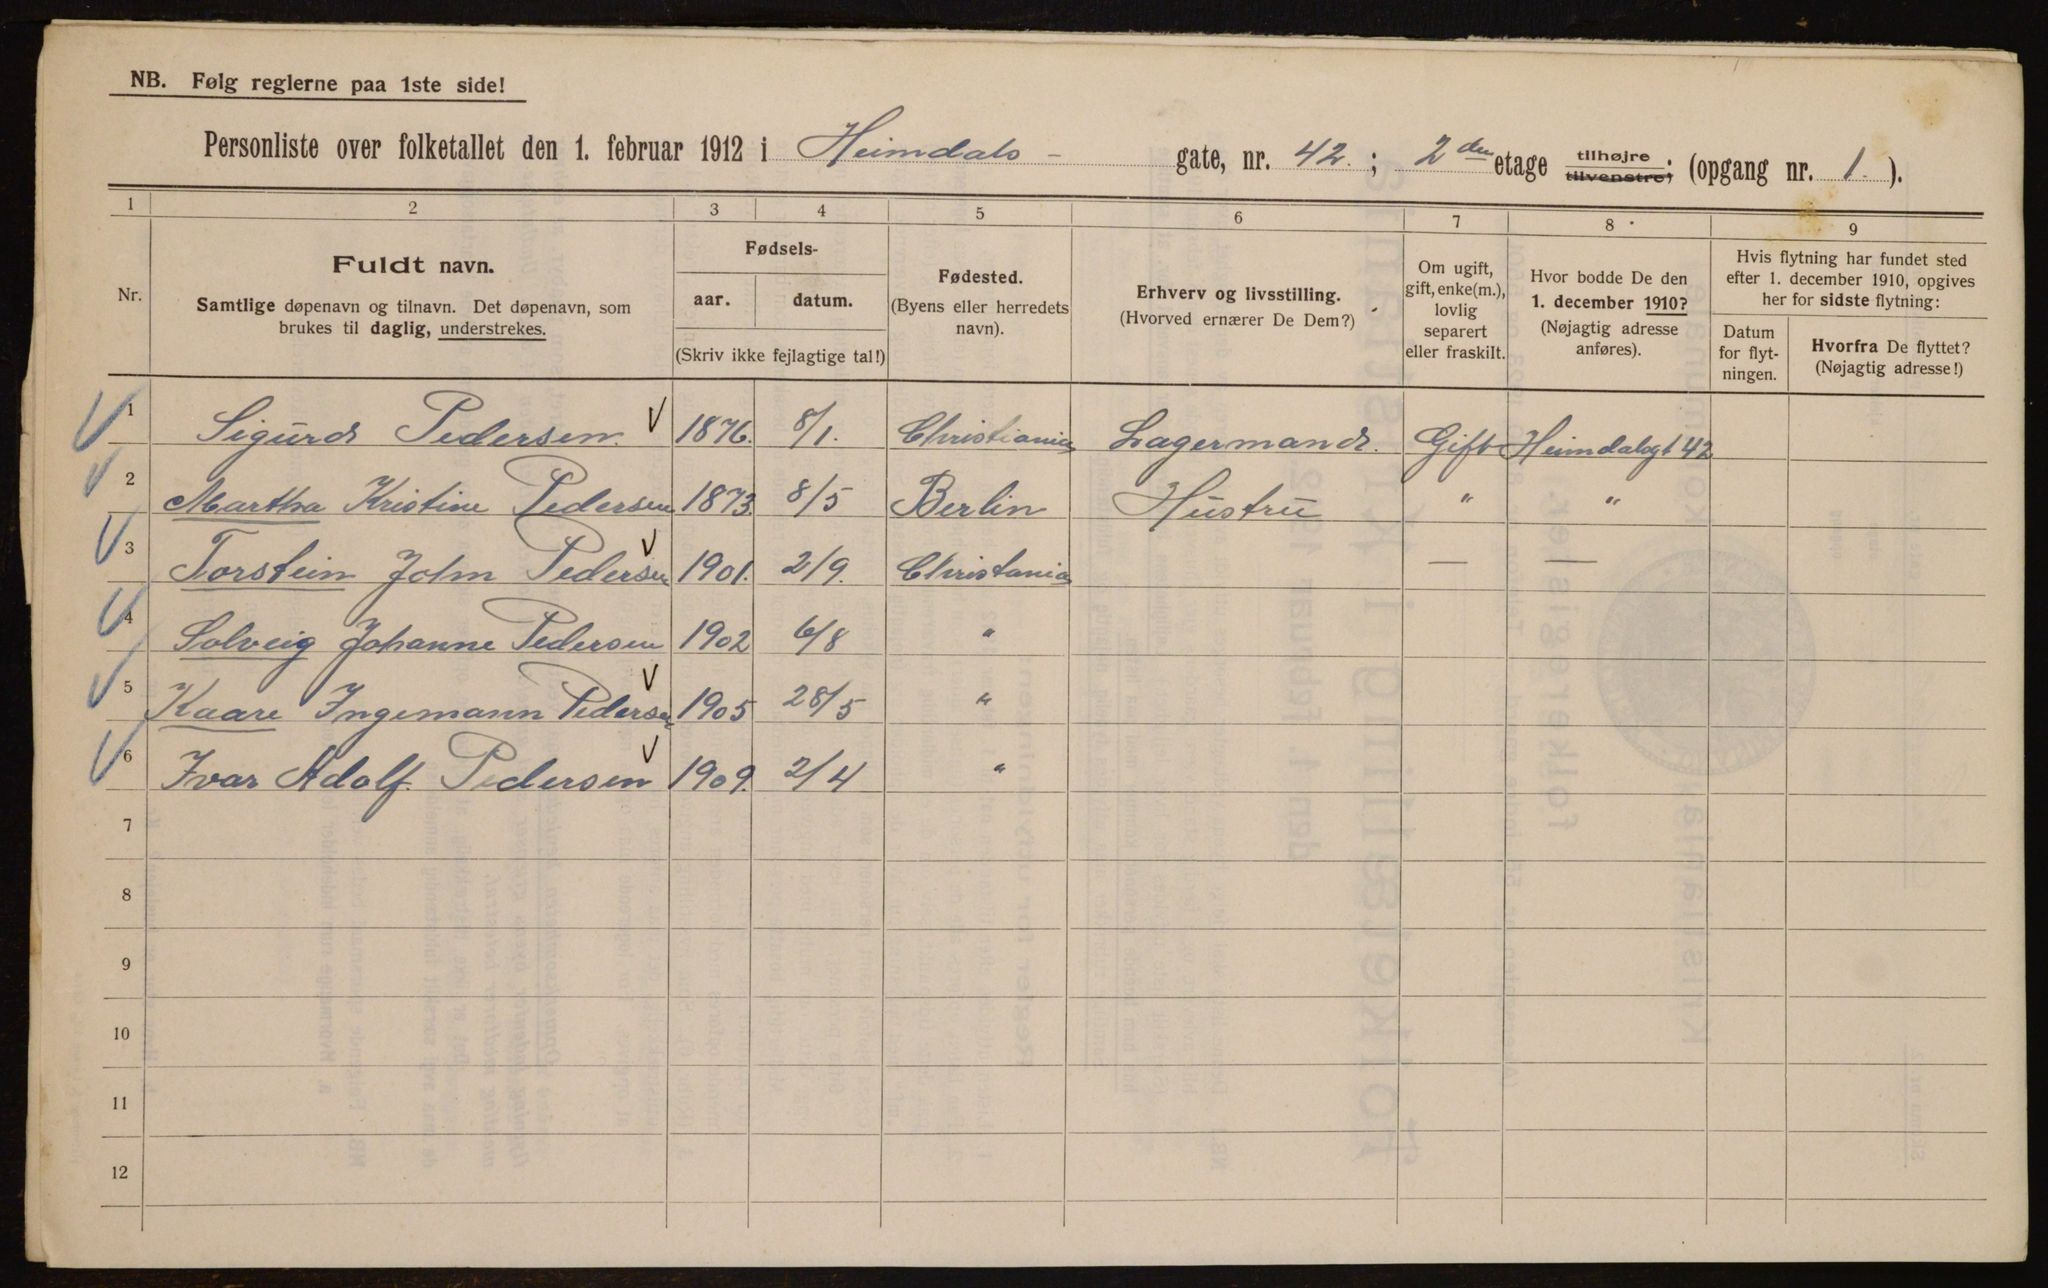 NB. Følg reglerne paa 1ste side!
Personliste over folketallet den 1. februar 1912 i Heimdals - gate, nr. 42. ; 2den etage tilhøjre tilvenstre; (opgang nr. 1. ).
1 2 3 4 5 6 7 8 9
Nr.
Fuldt navn.
Samtlige døpenavn og tilnavn. Det døpenavn, som
brukes til daglig, understrekes.
Fødsels-
aar. datum.
(Skriv ikke fejlagtige tal!)
Fødested.
(Byens eller herredets
navn).
Erhverv og livsstilling.
(Hvorved ernærer De Dem?)
Om ugift,
gift, enke(m.),
lovlig
separert
eller fraskilt.
Hvor bodde De den
1. december 1910?
(Nøjagtig adresse
anføres).
Hvis flytning har fundet sted
efter 1. december 1910, opgives
her for sidste flytning:
Datum
for flyt-
ningen.
Hvorfra De flyttet?
(Nøjagtig adresse!)
1 Sigurd Pedersen. 1876. 8/1. Christiania Lagermand. Gift Heimdalsgt 42
2 Martha Kristine Pedersen 1873. 8/5 Berlin Hustru " "
3 Torstein John Pedersen 1901. 2/9. Christania — —
4 Solveig Johanne Pedersen 1902 6/8 "
5 Kaare Ingemann Pedersen 1905 28/5 "
6 Ivar Adolf. Pedersen 1909. 2/4 "
7
8
9
10
11
12